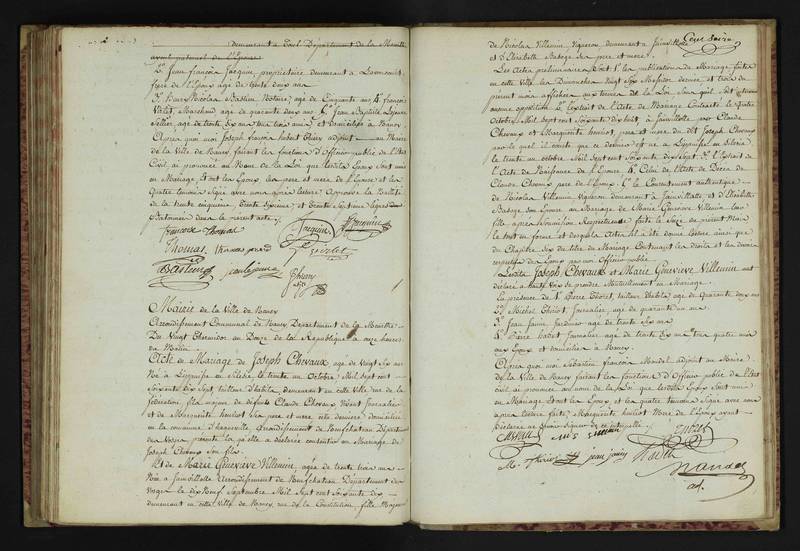 demeurant a Toul Département de la Meurthe
2.° Jean françois Jacquin, propriétaire demeurant a
frere de l'Epouse agé de trente deux ans
3.° Nicolas Bastien Notaire, agé de Cinquante ans 4.° françois
Violet, Marchand agé de quarante deux ans
Sellier, agé de trente six ans tous trois amis et domiciliés a Nancy
Après quoi moi Joseph françois hubert Thiery adjoint au Maire
de la Ville de Nancy faisant les fonctions d'Officier public de l'Etat
Civil ai prononcé au Nom de la Loi que lesdits Epoux sont unis
en Mariage Et ont les Epoux les pere et mere de l'Epouse et les
Quatre temoins Signé avec nous après lecture
de la trente cinquieme, trente sixieme et trente Septieme lignes
Bâtonnées dans le présent acte
françoise Thomas
Jacquin
Thomas
Violet
Bastien
jean lejeune
Thiery
adj.
Mairie de la Ville de Nancy
Arrondissement Communal de Nancy Département de la Meurthe.
Du Vingt Thermidor an Douze de la République a onze heures
du Matin
Acte de Mariage de Joseph Chevaux, agé de Vingt Six ans
Né a en Silésie le trente un Octobre Mil Sept cent
Soixante dix Sept tailleur d'habits, demeurant en cette Ville rue de la
fédération fils majeur de défunt Claude Chevaux Vivant Journalier
et de Marguerite huilliot Ses pere et mere cette derniere domiciliée
en la commune d' Arrondissement de Neufchateau Départ.t
des Vosges présente laquelle a déclaré consentir au Mariage de
Joseph Chevaux Son fils
Et de Marie Geneviève Villemin, agée de trente trois ans
Née a Jainvillotte Arrondissement de Neufchateau Département des
Vosges le dix Neuf Septembre Mil Sept cent Soixante dix
demeurant en cette Ville de Nancy, rue de la Constitution, fille Majeure
de Nicolas Villemin, Vigneron, demeurant a Jainvillotte
et d'Elisabeth Ses pere et mere
Les Actes preliminaires Sont 1.° les publications de Mariage faites
en cette Ville les Dimanches Vingt Six Messidor dernier et trois du
présent mois affichées aux termes de la Loi Sans qu'il Soit
aucune opposition 2.° l'extrait de l'Acte de Mariage Contracté le Quatre
Octobre Mil Sept cent Soixante dix huit, a Jainvillotte par Claude
Chevaux et Marguerite huilliot, pere et mere du dit Joseph Chevaux
par le quel il conste que ce dernier est né a en Silésie
le trente un octobre Mil Sept cent Soixante dix Sept 3.° l'extrait de
l'Acte de Naissance de l'Epouse 4.° Celui de l'Acte de Décès de
Claude Chevaux pere de l'Epoux 5.° Le Consentement authentique
de Nicolas Villemin Vigneron demeurant a Jainvillotte, et d'Elisabeth
Son Epouse au Mariage de Marie Geneviève Villemin leur
fille
le tout en forme et desquels Actes il a été donné lecture ainsi que
du Chapitre Six du titre du Mariage Contenant les droits et les devoirs
respectifs des Epoux par moi Officier public
Lesdits Joseph Chevaux et Marie Geneviève Villemin ont
déclaré a haute Voix Se prendre Mutuellement en Mariage
En présence de 1.° Pierre Thiriet, tailleur d'habits, agé de Quarante deux ans
2.° Michel Thiriot, Journalier, agé de quarante un ans
3.° Jean Jardinier agé de trente Six ans
4.° Pierre hadet Journalier agé de trente dix ans tous quatre amis
des Epoux et domiciliés a Nancy.
Après quoi moi Sébastien françois Mandel adjoint au Maire
de la Ville de Nancy faisant les fonctions d'Officier public de l'Etat
civil ai prononcé au nom de la Loi que lesdits Epoux Sont unis
en Mariage Et ont les Epoux et les quatre temoins Signé avec nous
après lecture faite, Marguerite huilliot Mere de l'Epoux ayant
déclaré ne Savoir Signer de ce interpellée
Mandel
adj.